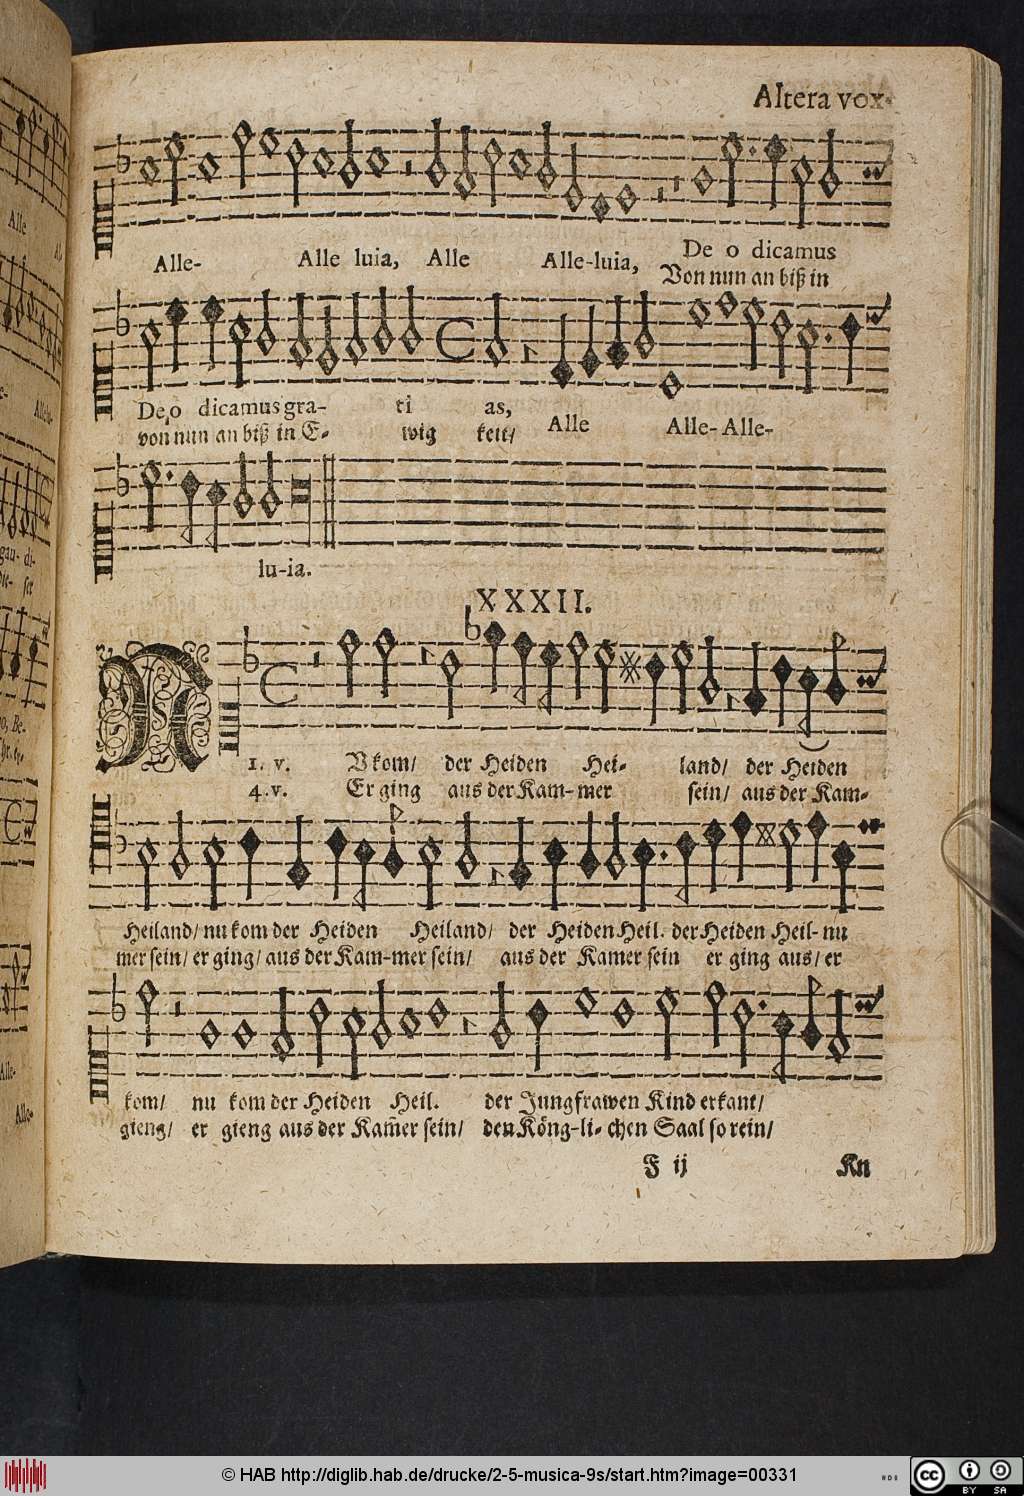 Altera vox.
Alle- Alle luia, Alle Alle-luia, De o dicamus
Von nun an biß in
De,o dicamus gra- ti as, Alle Alle- Alle-
von nun an biß in E- wig keit/
lu-ia.
XXXII.
1. v. NV kom/ der Heiden Hei- land/ der Heiden
4. v. Er ging aus der Kam- mer sein/ aus der Kam-
Heiland/ nu kom der Heiden Heiland/ der Heiden Heil. der Heiden Heil- nu
mer sein/ er ging/ aus der Kam-mer sein/ aus der Kamer sein er ging aus/ er
kom/ nu kom der Heiden Heil. der Jungfrawen Kind erkant/
gieng/ er gieng aus der Kam̃er sein/ den Köng-li- chen Saal so rein/
F ij Kn
Alle
gau- di-
ser
o, Be-
Alle-
Alle-
© HAB http://diglib.hab.de/drucke/2-5-musica-9s/start.htm?image=00331
cc BY SA